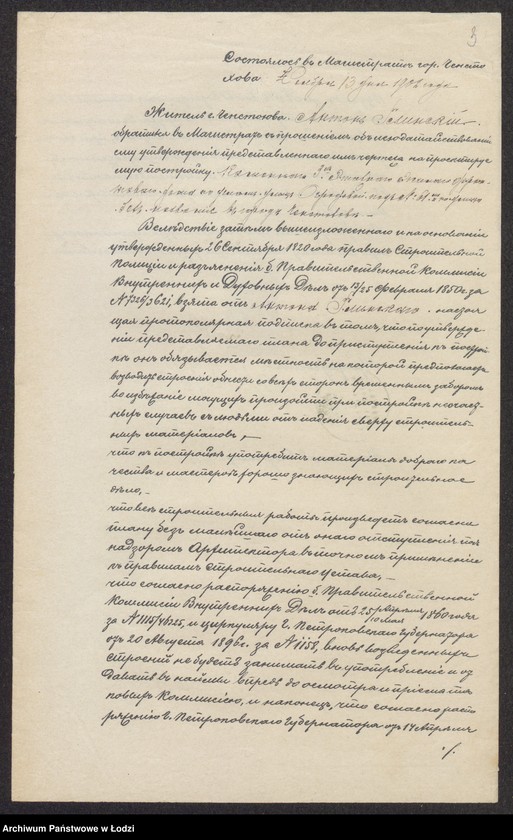 3
Состоялось въ Магистратѣ гор. Ченсто
хова 13 дня 1906 года
Житель г. Ченстохова Антонъ
обратился въ Магистратъ съ прошеніемъ объ исходатайствованіи
ему утвержденія представленнаго имъ чертежа на проектируе
мую постройку каменнаго этажнаго жилого
дома
города Ченстохова
Вслѣдствіе затѣмъ вышеизложеннаго и на основаніи
утвержденныхъ 26 Сентября 1820 года правилъ Строительной
Полиціи и разъясненія б. Правительственной Коммисіи
Внутреннихъ и Духовныхъ Дѣлъ отъ 13/25 Февраля 1850 г. за
№ 7326/3621, взята отъ Антона настоя
щая протокулярная подписка въ томъ, что по утвержде
ніи представляемаго плана до приступленія къ построй
кѣ онъ обязывается мѣстность на которой предположено
возводить строенія обнести со всѣхъ сторонъ временнымъ заборомъ
во избѣжаніе могущихъ произойти при постройкѣ несчаст
ныхъ случаевъ съ людьми отъ паденія сверху строитель
ныхъ матеріаловъ,
что къ постройкѣ употребитъ матеріалъ добраго ка
чества и мастеровъ хорошо знающихъ строительное
дѣло,
что всѣ строительныя работы произведетъ согласно
плану безъ малѣйшаго отъ онаго отступленія подъ
надзоромъ Архитектора въ точномъ примѣненіи
къ правиламъ Строительнаго Устава,
что согласно распоряженію б. Правительственной
Коммисіи Внутреннихъ Дѣлъ отъ 25 Апрѣля/10 Мая 1860 года
за № 1115/4625, и циркуляру г. Петроковскаго Губернатора
отъ 20 Августа 1896 г. за № 1152, вновь возведенныхъ
строеній не будетъ занимать въ употребленіе и от
давать въ наймы впредь до осмотра и пріема та
ковыхъ Коммисіею, и наконецъ, что согласно распо
ряженію г. Петроковскаго Губернатора отъ 14 Апрѣля
./.
Archiwum Państwowe w Łodzi